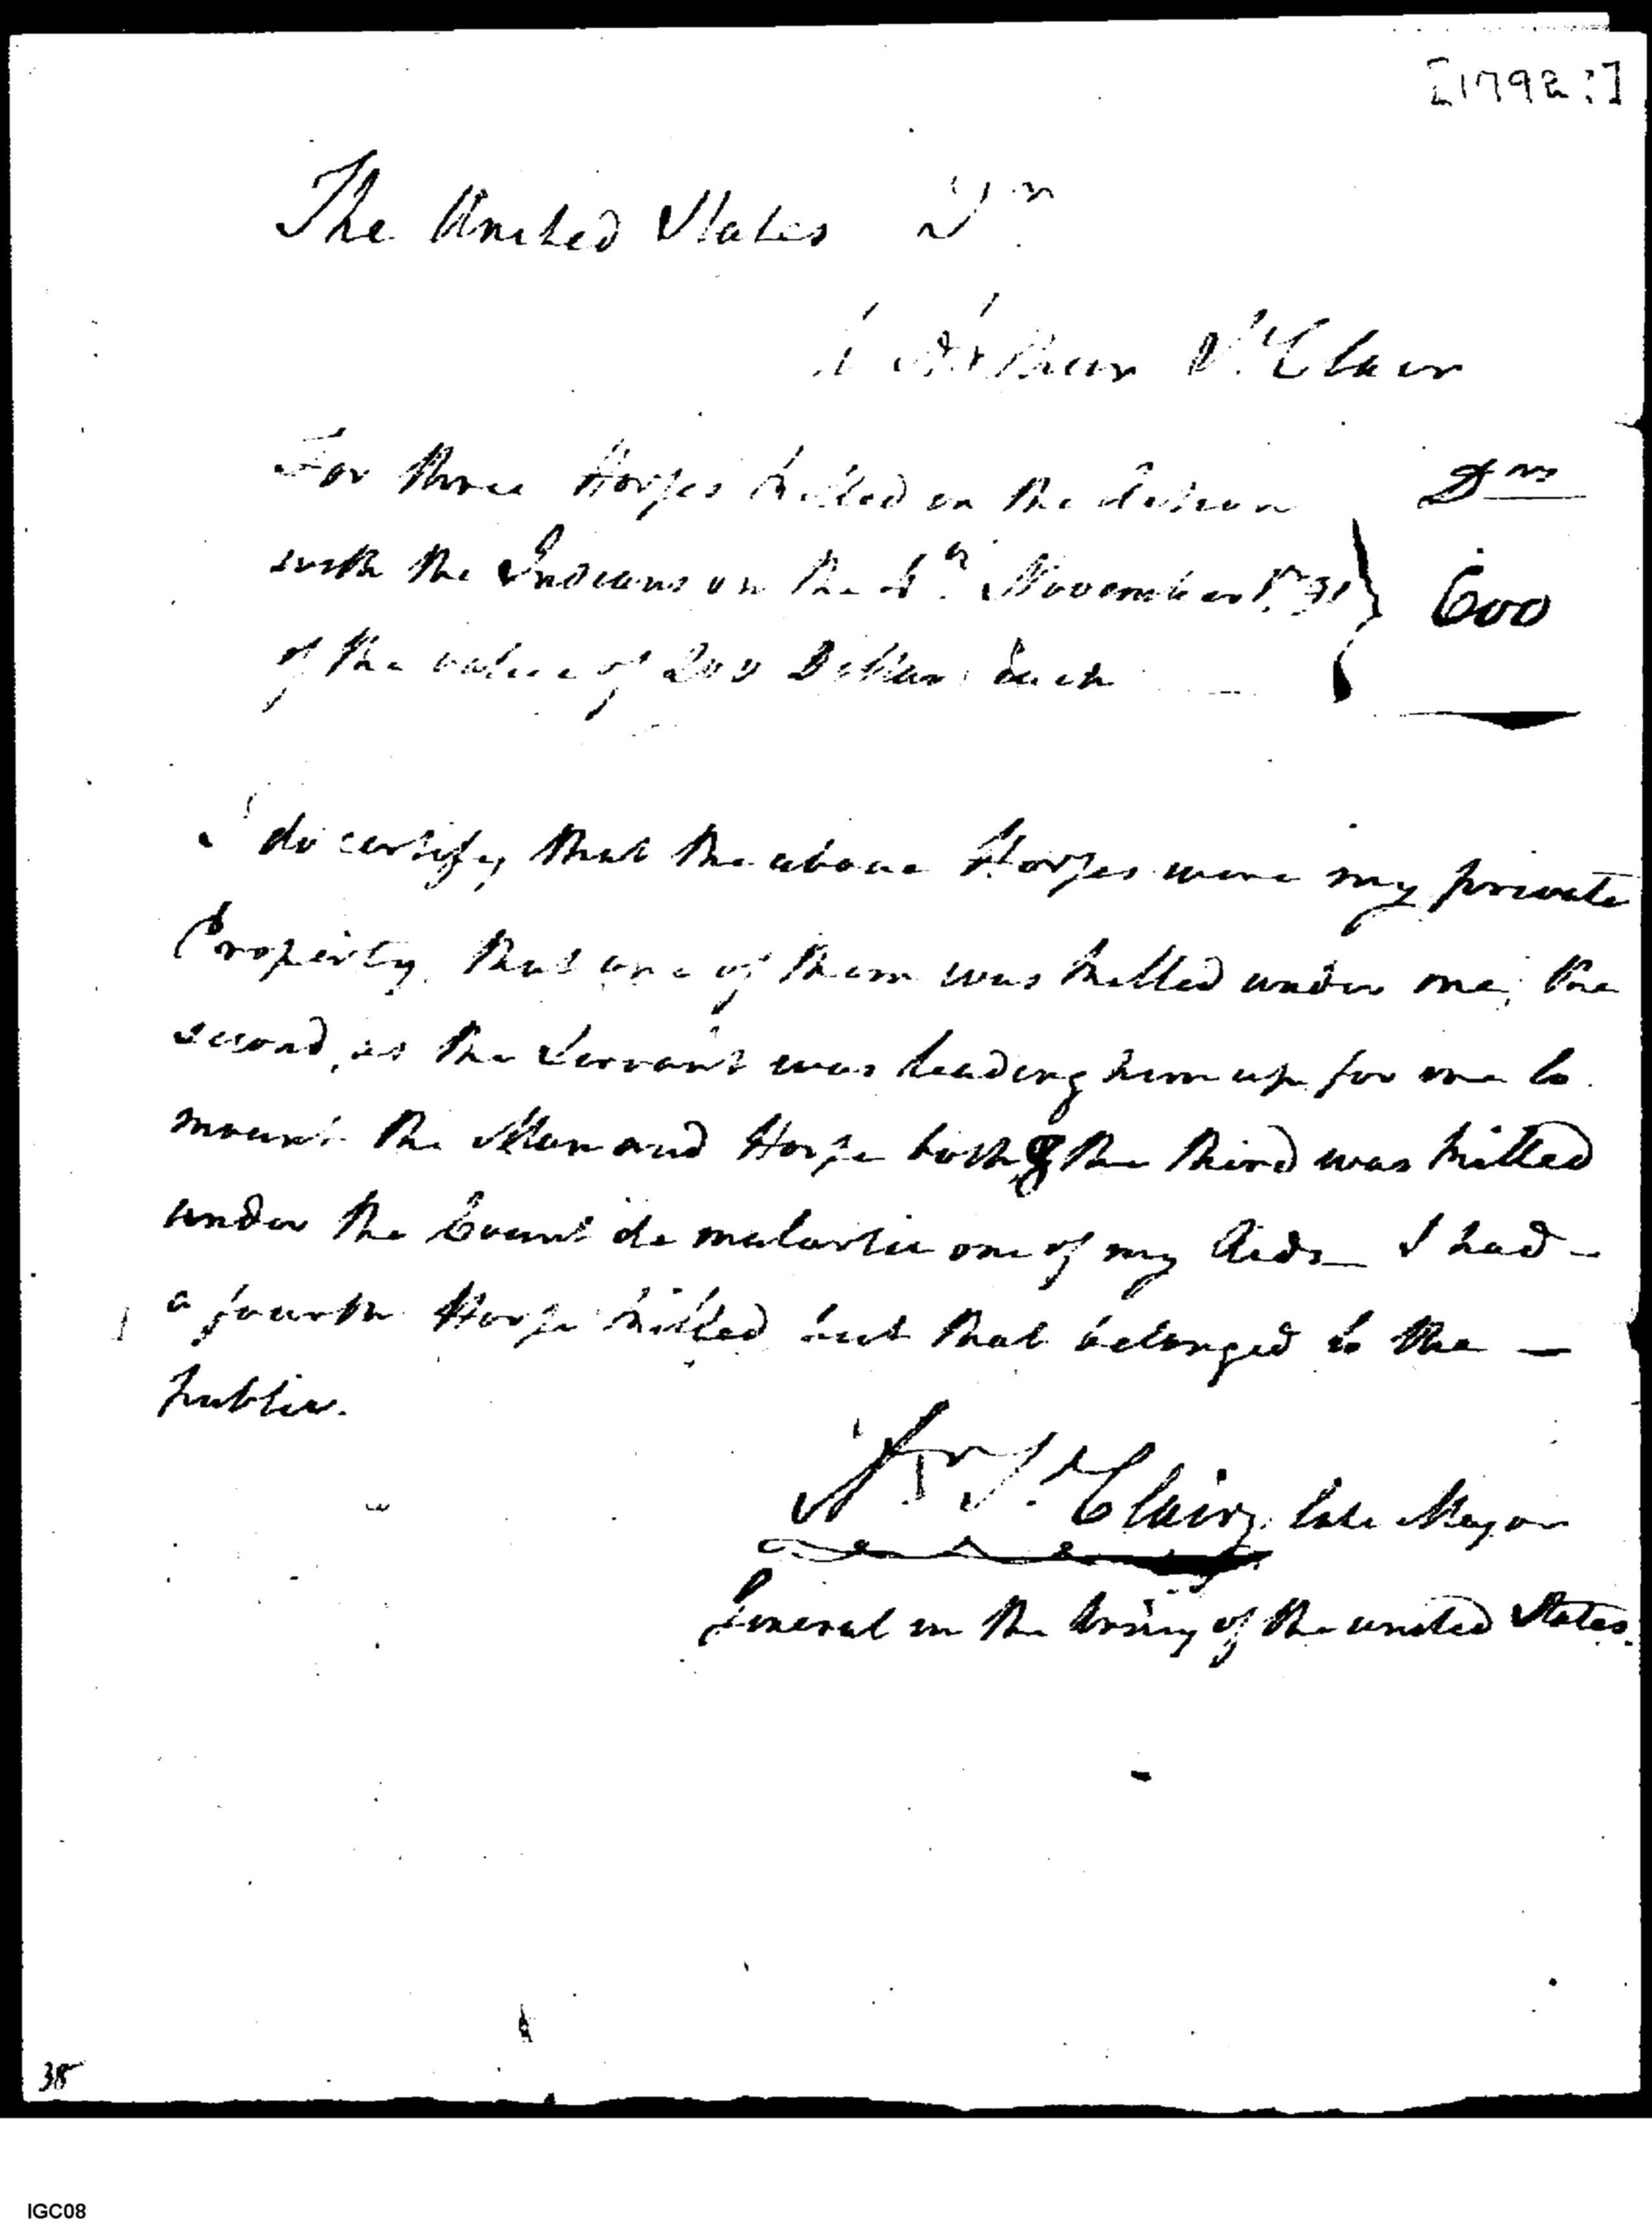 [1792?]
The United States Dr.
to Arthur St. Clair
For three Horses killed in the Action Drs
with the Indians on the 4th. November 1791 } 600
of the value of 200 Dollars Each
I do certify that the above Horses were my private
Property. that one of them was killed under me; the
second, as the Servant was leading him up for me to
mount the Man and Horse both & the third was killed
under the Count de malartie one of my Aids— I had—
a fourth Horse killed but that belonged to the —
publick.
Ar. St. Clair, late Major
General in the Army of the united States.
38
IGC08